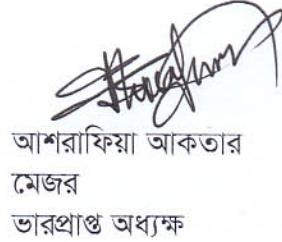 আশরাফিয়া আকতার
মেজর
ভারপ্রাপ্ত অধ্যক্ষ